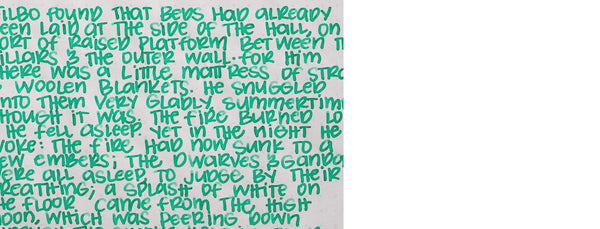 ILBO FOUND THAT BEDS HAD ALREADY
EEN LAID AT THE SIDE OF THE HALL, ON
ORT OF RAISED PLATFORM BETWEEN T
ILLARS & THE OUTER WALL. FOR HIM
HERE WAS A LITTLE MATTRESS OF STRA
& WOOLEN BLANKETS. HE SNUGGLED
NTO THEM VERY GLADLY, SUMMERTIM
HOUGH IT WAS. THE FIRE BURNED LO
HE FELL ASLEEP. YET IN THE NIGHT HE
WOKE: THE FIRE HAD NOW SUNK TO A
EW EMBERS; THE DWARVES & GANDA
ERE ALL ASLEEP TO JUDGE BY THEIR
REATHING; A SPLASH OF WHITE ON
HE FLOOR CAME FROM THE HIGH
OON, WHICH WAS PEERING DOWN